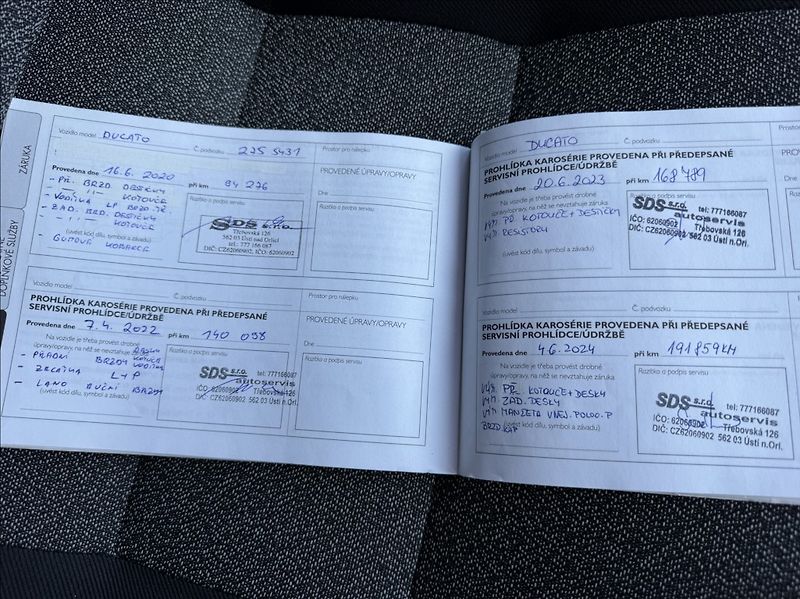 ZÁRUKA
DOPLŇKOVÉ SLUŽBY
Vozidlo model DUCATO Č. podvozku 275 5431
Provedena dne 16. 6. 2020 při km 94 276
- PŘ. BRZD. DESTIČKY
- -"- -"- KOTOUČE
- VODÍTKA LP BRZD. TŘ.
- ZAD. BRD. DESTIČKY
- -"- -"- KOTOUČE
(uvést kód dílu, symbol a závadu)
Razítko a podpis servisu
SDS s.r.o.
Třebovská 126
562 03 Ústí nad Orlicí
tel.: 777 166 087
DIČ: CZ62060902, IČO: 62060902
Prostor pro nálepku
PROVEDENÉ ÚPRAVY/OPRAVY
Dne
Razítko a podpis servisu
Vozidlo model Č. podvozku
PROHLÍDKA KAROSÉRIE PROVEDENA PŘI PŘEDEPSANÉ
SERVISNÍ PROHLÍDCE/ÚDRŽBĚ
Provedena dne 7. 4. 2022 při km 140 098
Na vozidle je třeba provést drobné
úpravy/opravy, na něž se nevztahuje záruka
- PŘADNÍ BRZDY KOTOUČE
VODÍTKA
- ZRCÁTKA L+P
- LANO RUČNÍ BRZDY
(uvést kód dílu, symbol a závadu)
Razítko a podpis servisu
SDS s.r.o. tel: 777166087
autoservis
IČO: 62060902 Třebovská 126
DIČ: CZ62060902 562 03 Ústí n.Orl.
Prostor pro nálepku
PROVEDENÉ ÚPRAVY/OPRAVY
Dne
Razítko a podpis servisu
Vozidlo model DUCATO Č. podvozku
Prosto
PROHLÍDKA KAROSÉRIE PROVEDENA PŘI PŘEDEPSANÉ
SERVISNÍ PROHLÍDCE/ÚDRŽBĚ
PROVED
Provedena dne 20. 6. 2023 při km 168 789
Na vozidle je třeba provést drobné
úpravy/opravy, na něž se nevztahuje záruka
VÝM PŘ KOTOUČE+DESTIČKY
VÝM RESISTORU
(uvést kód dílu, symbol a závadu)
Razítko a podpis servisu
SDS s.r.o. tel: 777166087
autoservis
IČO: 62060902 Třebovská 126
DIČ: CZ62060902 562 03 Ústí n.Orl.
Dne
Razítk
Vozidlo model Č. podvozku
Prosto
PROHLÍDKA KAROSÉRIE PROVEDENA PŘI PŘEDEPSANÉ
SERVISNÍ PROHLÍDCE/ÚDRŽBĚ
PROV
Provedena dne 4. 6. 2024 při km 191 859 KM
Na vozidle je třeba provést drobné
úpravy/opravy, na něž se nevztahuje záruka
VÝM. PŘ. KOTOUČE+DESKY
VÝM ZAD. DESKY
VÝM MANŽETA VNEJ. POLOO. P
(uvést kód dílu, symbol a závadu)
Razítko a podpis servisu
SDS s.r.o. tel: 777166087
autoservis
IČO: 62060902 Třebovská 126
DIČ: CZ62060902 562 03 Ústí n.Orl.
Dne
Razít